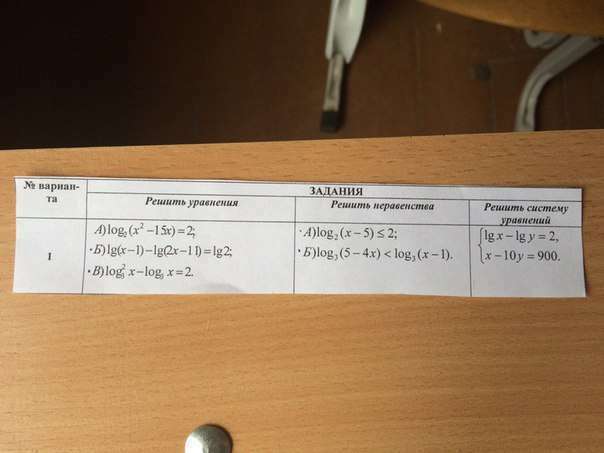 № вариан-
та
ЗАДАНИЯ
Решить уравнения
Решить неравенства
Решить систему
уравнений
I
А) log (x² −15x) = 2;
Б) lg(x−1)−lg(2x−11)=lg2;
В) log₃² x−log₃ x = 2.
А) log₂ (x−5) ≤ 2;
Б) log₃ (5−4x) < log₃ (x−1).
lg x − lg y = 2,
x −10y = 900.